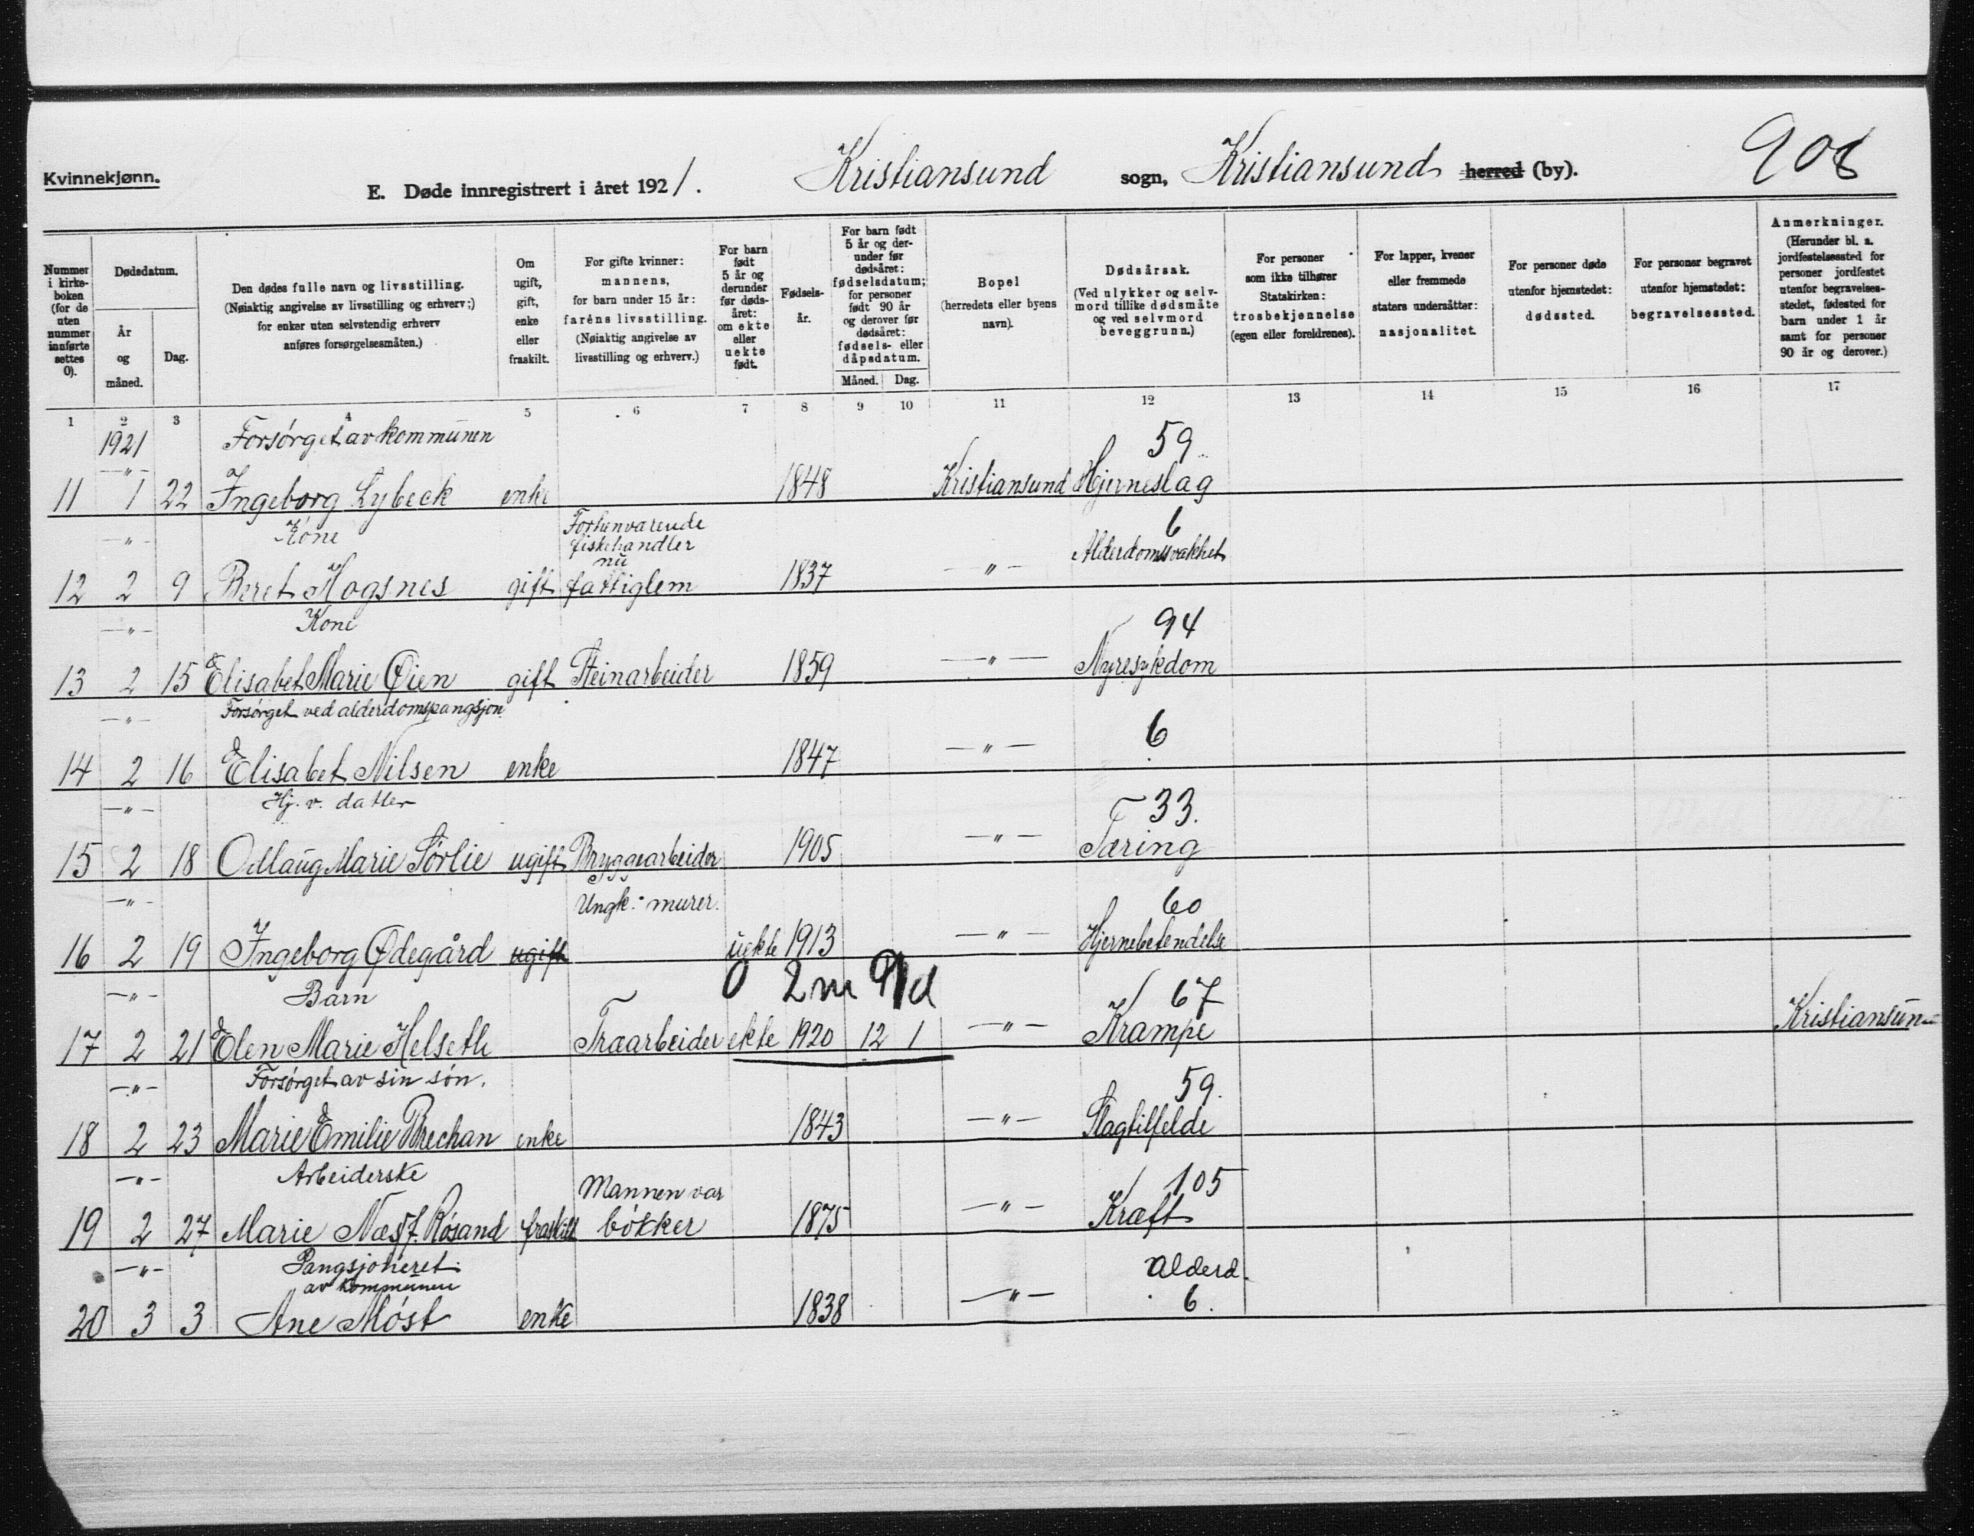 Kvinnekjønn.
E. Døde innregistrert i året 1921. Kristiansund sogn, Kristiansund herred (by).
Nummer i kirkeboken (for de uten nummer innførte settes 0).
Dødsdatum.
År og måned.
Dag.
Den dødes fulle navn og livsstilling.
(Nøiaktig angivelse av livsstilling og erhverv;)
for enker uten selvstendig erhverv
anføres forsørgelsesmåten.)
Om ugift, gift, enke eller fraskilt.
For gifte kvinner:
mannens,
for barn under 15 år:
farens livsstilling.
(Nøiaktig angivelse av
livsstilling og erhverv.)
For barn født 5 år og derunder før dødsåret: om ekte eller uekte født.
Fødselsår.
For barn født 5 år og derunder før dødsåret: fødselsdatum; for personer født 90 år og derover før dødsåret: fødsels- eller dåpsdatum.
Måned. Dag.
Bopel
(herredets eller byens navn).
Dødsårsak.
(Ved ulykker og selvmord tillike dødsmåte og ved selvmord beveggrunn.)
For personer som ikke tilhører Statskirken: trosbekjennelse (egen eller foreldrenes).
For lapper, kvener eller fremmede staters undersåtter: nasjonalitet.
For personer døde utenfor hjemstedet: dødssted.
For personer begravet utenfor hjemstedet: begravelsessted.
Anmerkninger.
(Herunder bl. a. jordfestelsessted for personer jordfestet utenfor begravelsesstedet, fødested for barn under 1 år samt for personer 90 år og derover.)
1 2 3 4 5 6 7 8 9 10 11 12 13 14 15 16 17
1921 Forsørget av kommunen 59
11 -"- 1 22 Ingeborg Lybeck enke 1848 Kristiansund Hjerneslag
-"- Kone Forhenværende fiskehandler nu 6
12 2 9 Beret Hogsnes gift fattiglem 1837 -"- Alderdomssvakhet
-"- Kone 94
13 2 15 Elisabet Marie Øien gift Steinarbeider 1859 -"- Nyresykdom
-"- Forsørget ved alderdomspangsjon
14 2 16 Elisabet Nilsen enke 1847 -"- 6
-"- Hj. v. datter 33.
15 2 18 Odlaug Marie Sørlie ugift Bryggearbeider 1905 -"- Tæring
-"- Ungk. murer. 60
16 2 19 Ingeborg Ødegård ugift uekte 1913 -"- Hjernebetendelse
-"- Barn 2 m 9 d 67
17 2 21 Elen Marie Helseth Træarbeider ekte 1920 12 1 -"- Krampe Kristiansund
-"- Forsørget av sin søn. 59.
18 2 23 Marie Emilie Brechan enke 1843 -"- Slagtilfelde
-"- Arbeiderske Mannen var 105
19 2 27 Marie Næs f. Røsand fraskilt bøkker 1875 -"- Kræft
-"- Pangsjoneret av kommunen Alderd.
20 3 3 Ane Møst enke 1838 -"- 6.